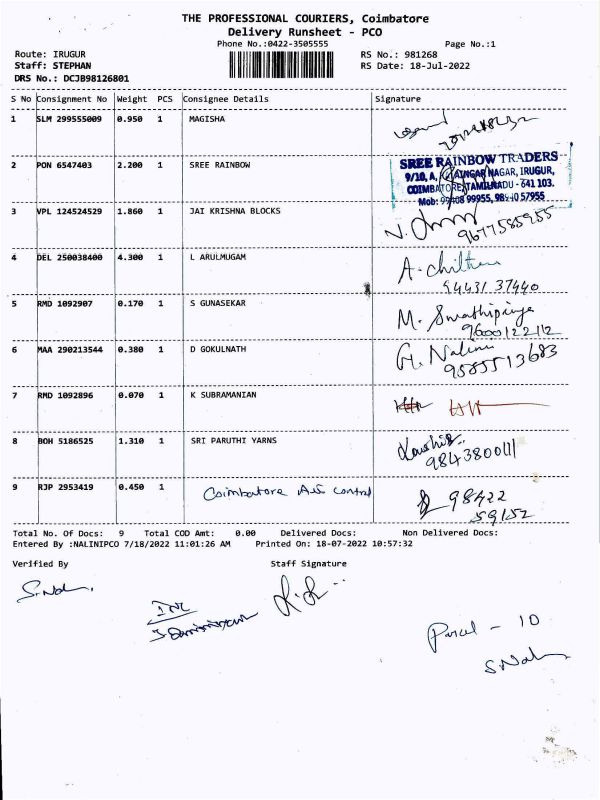 THE PROFESSIONAL COURIERS, Coimbatore
Delivery Runsheet - PCO
Phone No.:0422-3505555 Page No.:1
Route: IRUGUR RS No.: 981268
Staff: STEPHAN RS Date: 18-Jul-2022
DRS No.: DCJB98126801
S No Consignment No Weight PCS Consignee Details Signature
1 SLM 299555009 0.950 1 MAGISHA
2 PON 6547403 2.200 1 SREE RAINBOW
SREE RAINBOW TRADERS
9/10, A, NAGAR, IRUGUR,
COIMBATORE, TAMILNADU - 641 103.
Mob: 99408 99955, 98940 57955
3 VPL 124524529 1.860 1 JAI KRISHNA BLOCKS
9677585955
4 DEL 250038400 4.300 1 L ARULMUGAM A. chithra
94431 37440
5 RMD 1092907 0.170 1 S GUNASEKAR M. Swathipriya
9600122112
6 MAA 290213544 0.380 1 D GOKULNATH G. Nalini
9585513683
7 RMD 1092896 0.070 1 K SUBRAMANIAN
8 BOH 5186525 1.310 1 SRI PARUTHI YARNS Koushik
9843800111
9 RJP 2953419 0.450 1 Coimbatore Air Control 98422
59152
Total No. Of Docs: 9 Total COD Amt: 0.00 Delivered Docs: Non Delivered Docs:
Entered By :NALINIPCO 7/18/2022 11:01:26 AM Printed On: 18-07-2022 10:57:32
Verified By Staff Signature
Parcel - 10